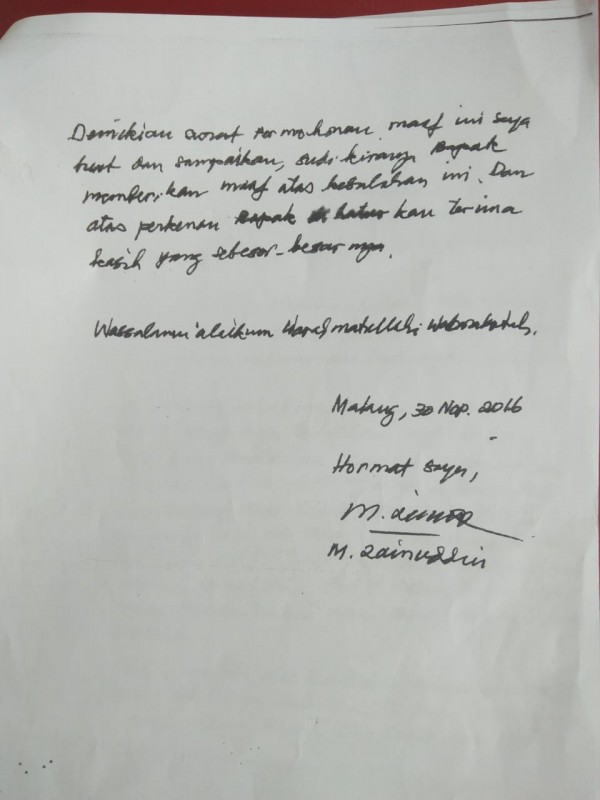 Demikian surat permohonan maaf ini saya
buat dan sampaikan, sudi kiranya Bapak
memberikan maaf atas kesalahan ini. Dan
atas perkenan Bapak di haturkan terima
kasih yang sebesar-besarnya.
Wassalamu'alaikum Warahmatullahi Wabarakatuh.
Malang, 30 Nop. 2016
Hormat saya,
M. Zainuddin